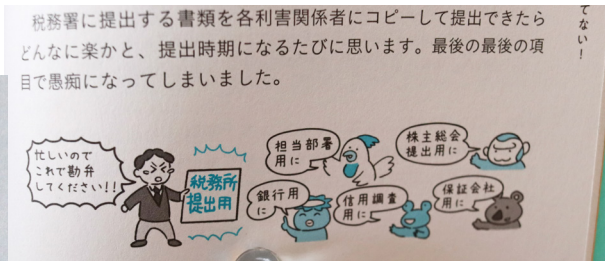 税務署に提出する書類を各利害関係者にコピーして提出できたら
どんなに楽かと、提出時期になるたびに思います。最後の最後の項
目で愚痴になってしまいました。
てない！
忙しいので
これで勘弁
してください!!
税務所
提出用
担当部署
用に
株主総会
提出用に
銀行用
に
信用調査
用に
保証会社
用に